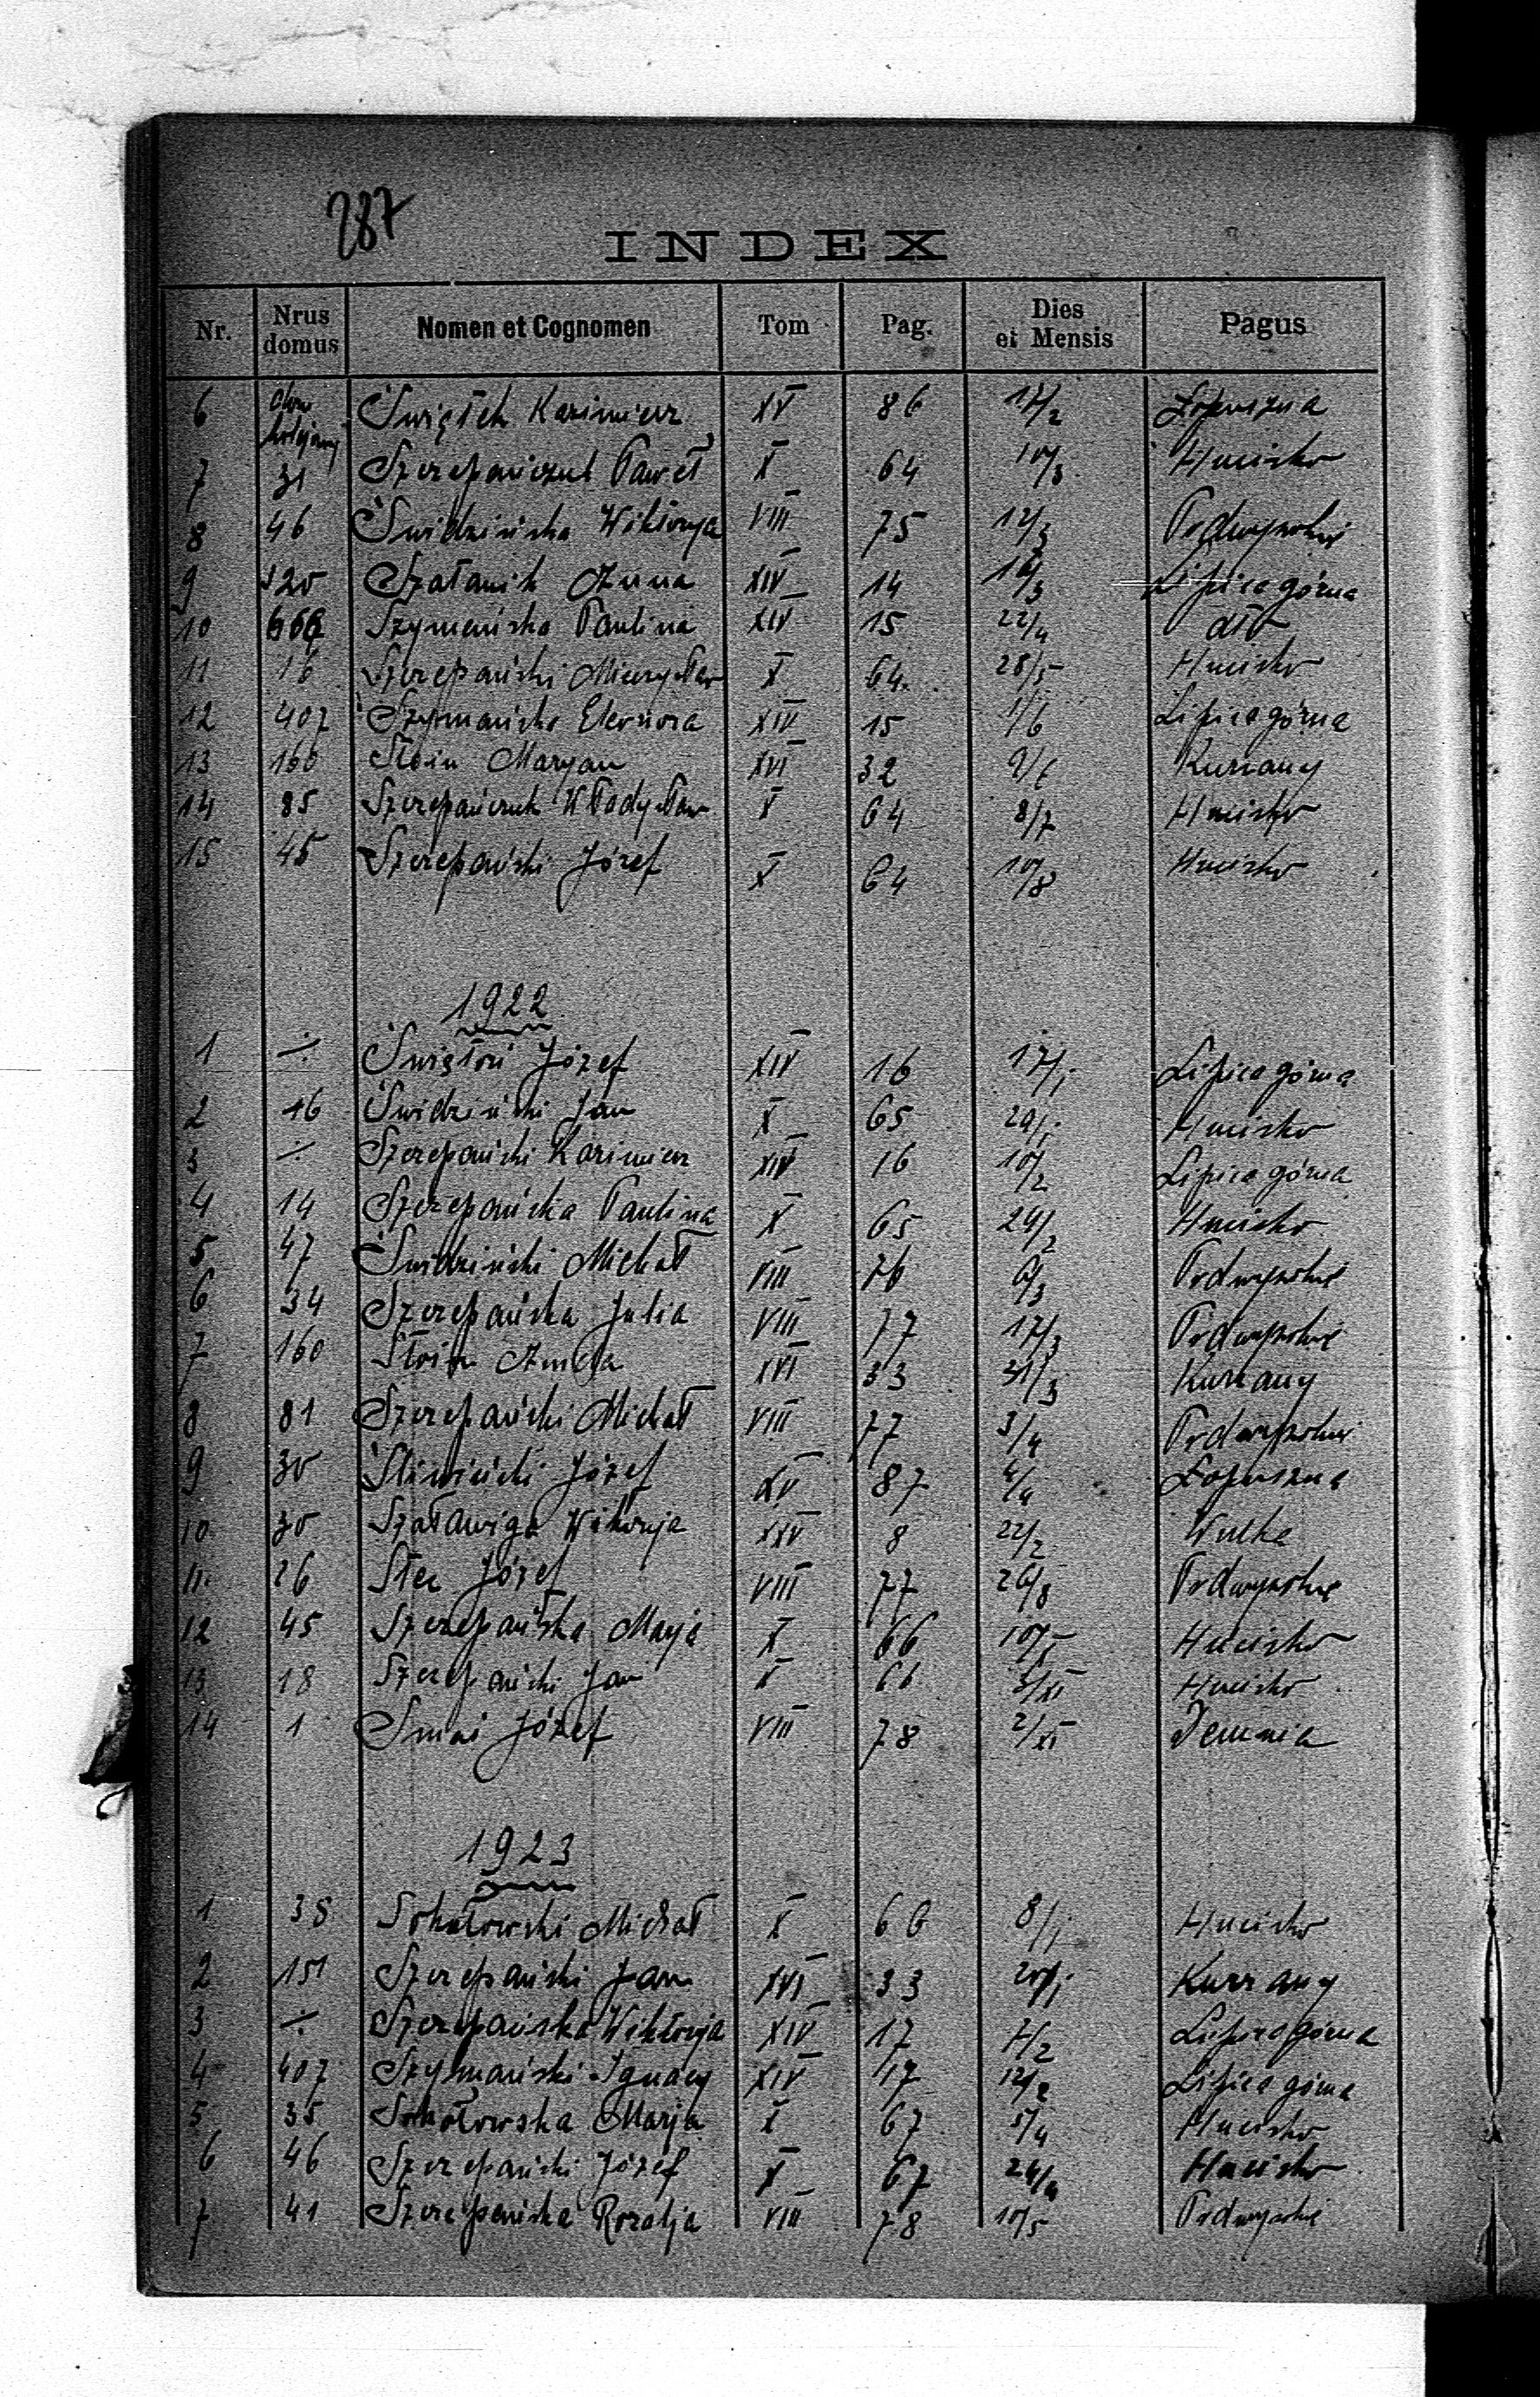 287
INDEX
Nr. Nrus domus Nomen et Cognomen Tom Pag. Dies et Mensis Pagus
6 Kazimierz XV 86 17/2 Łopuszna
7 31 Szczepańczuk Paweł X 64 10/3 Hucisko
8 46 Świdzińska Wiktorya VIII 75 12/3 Podwysokie
9 120 Anna XIV 14 16/3 Lipica górna
10 Szymańska Paulina XIV 15 22/4 dtto
11 16 Szczepański Mieczysław X 64 28/5 Hucisko
12 407 Szymańska Eleonora XIV 15 1/6 Lipica górna
13 160 Słoin Maryan XVI 32 9/6 Kurzany
14 85 Szczepańczuk Władysław X 64 8/7 Hucisko
15 45 Szczepański Józef X 64 10/8 Hucisko
1922
1 ÷ Józef XIV 16 17/1 Lipica górna
2 16 Świdziński Jan X 65 29/1 Hucisko
3 ÷ Szczepański Kazimierz XIV 16 10/2 Lipica górna
4 14 Szczepańska Paulina X 65 24/2 Hucisko
5 47 Świdziński Michał VIII 76 6/3 Podwysokie
6 34 Szczepańska Julia VIII 77 17/3 Podwysokie
7 160 Słoin XVI 33 21/3 Kurzany
8 81 Szczepański Michał VIII 77 3/4 Podwysokie
9 30 Śliwiński Józef XV 87 4/4 Łopuszna
10 30 Szaławiga Wiktorja XXV 8 22/2 Wulka
11 26 Stec Józef VIII 77 26/8 Podwysokie
12 45 Szczepańska Marja X 66 10/X Hucisko
13 18 Szczepański Jan X 66 5/XI Hucisko
14 1 Józef VIII 78 2/XI
1923
1 38 Sokołowski Michał X 66 8/1 Hucisko
2 151 Szczepański Jan XVI 33 20/1 Kurzany
3 ÷ Szczepańska Wiktorja XIV 17 7/2 Lipica górna
4 407 Szymański Ignacy XIV 17 12/2 Lipica górna
5 35 Sokołowska Marja X 67 5/4 Hucisko
6 46 Szczepański Józef X 67 24/4 Hucisko
7 41 Szczepańska Rozalja VIII 78 10/5 Podwysokie